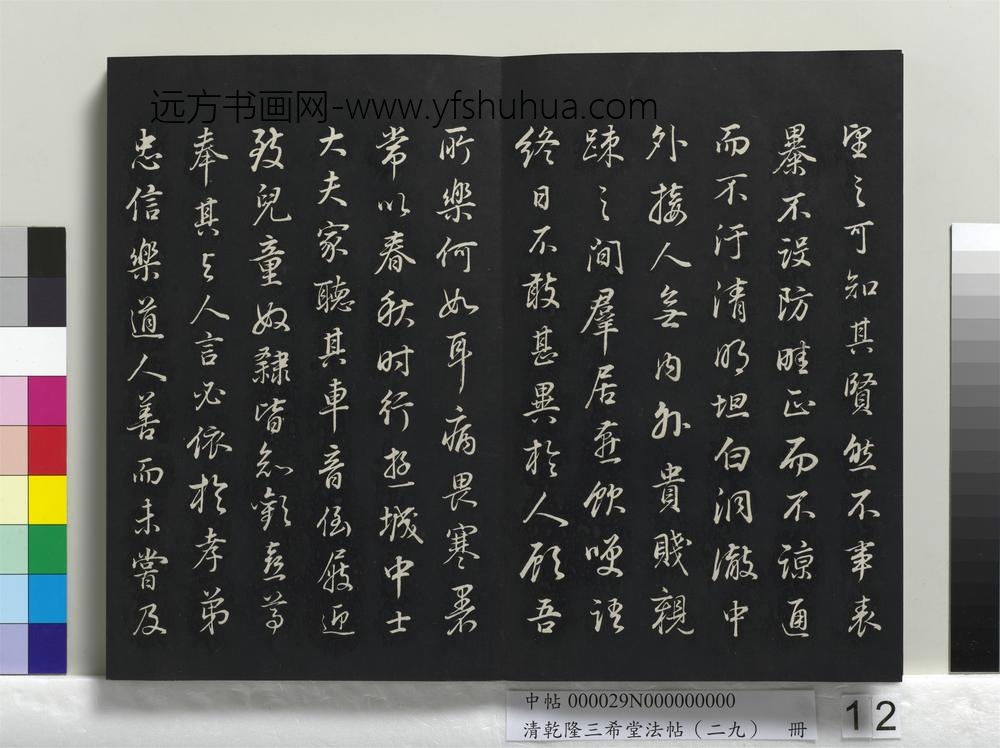 远方书画网-www.yfshuhua.com
望之可知其賢然不事表
暴不設防畦正而不諒通
而不汙清明坦白洞澈中
外接人無內外貴賤親
踈之間羣居燕飲咲語
終日不敢甚異於人顧吾
所樂何如耳病畏寒暑
常以春秋时行遊城中士
大夫家聽其車音倒屐迎
致兒童奴隸皆知歡喜尊
奉其与人言必依於孝弟
忠信樂道人善而未嘗及
中帖 000029N000000000
清乾隆三希堂法帖（二九） 冊
12